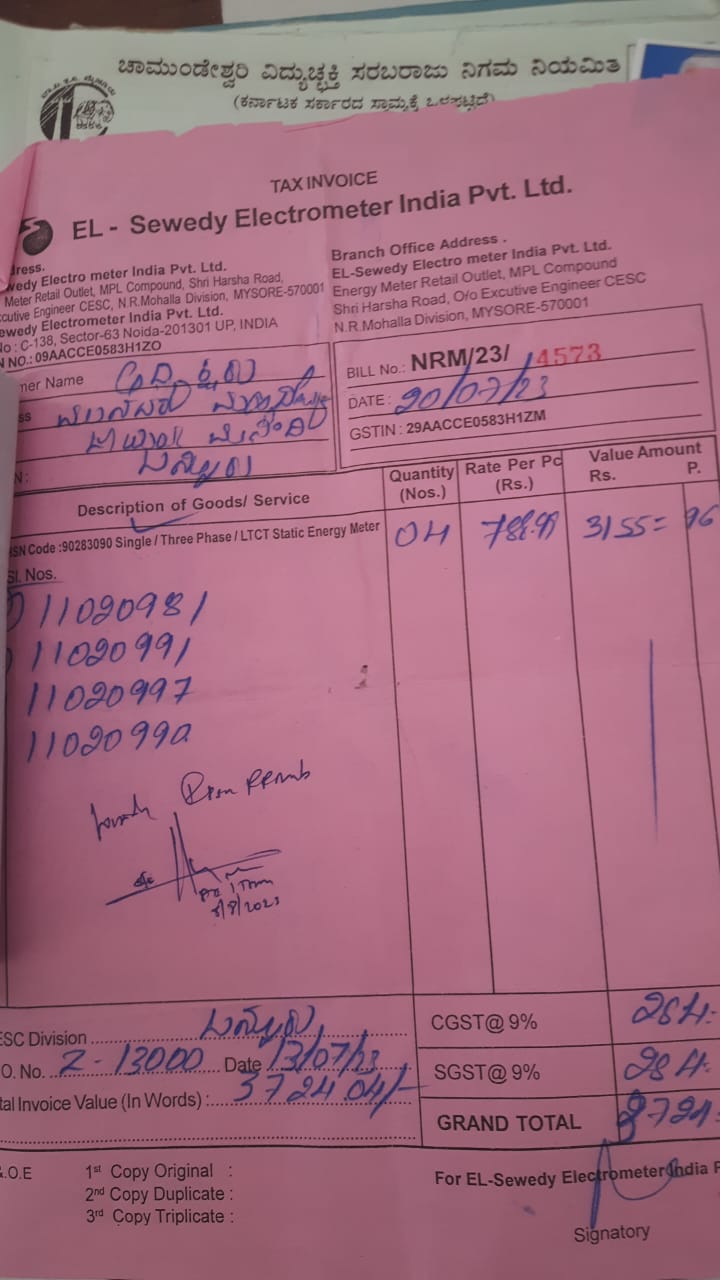 ಚಾಮುಂಡೇಶ್ವರಿ ವಿದ್ಯುಚ್ಛಕ್ತಿ ಸರಬರಾಜು ನಿಗಮ ನಿಯಮಿತ
(ಕರ್ನಾಟಕ ಸರ್ಕಾರದ ಸ್ವಾಮ್ಯಕ್ಕೆ ಒಳಪಟ್ಟಿದೆ)
TAX INVOICE
EL - Sewedy Electrometer India Pvt. Ltd.
dress.
wedy Electro meter India Pvt. Ltd.
Meter Retail Outlet, MPL Compound, Shri Harsha Road,
cutive Engineer CESC, N.R.Mohalla Division, MYSORE-570001
ewedy Electrometer India Pvt. Ltd.
No : C-138, Sector-63 Noida-201301 UP, INDIA
N NO.: 09AACCE0583H1ZO
Branch Office Address .
EL-Sewedy Electro meter India Pvt. Ltd.
Energy Meter Retail Outlet, MPL Compound
Shri Harsha Road, O/o Excutive Engineer CESC
N.R.Mohalla Division, MYSORE-570001
mer Name
ss
N:
BILL No.: NRM/23/ 4573
DATE : 20/07/23
GSTIN : 29AACCE0583H1ZM
Description of Goods/ Service
Quantity (Nos.)
Rate Per Pc (Rs.)
Value Amount Rs. P.
SN Code :90283090 Single / Three Phase / LTCT Static Energy Meter 04 788.99 3155= 96
Sl. Nos.
11020981
11020991
11020997
1102099
5/8/2023
ESC Division
O. No. Z-13000 Date 13/07/23
tal Invoice Value (In Words) : 3724 04/-
CGST@ 9% 284
SGST@ 9% 284
GRAND TOTAL 3724
.O.E
1st Copy Original :
2nd Copy Duplicate :
3rd Copy Triplicate :
For EL-Sewedy Electrometer India P
Signatory